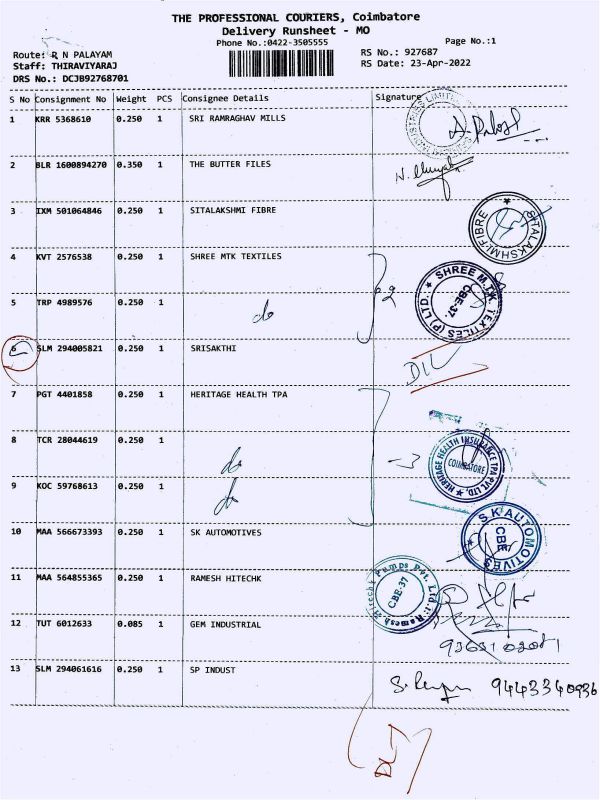 THE PROFESSIONAL COURIERS, Coimbatore
Delivery Runsheet - MO
Phone No.:0422-3505555
Page No.:1
Route: R N PALAYAM
RS No.: 927687
Staff: THIRAVIYARAJ
RS Date: 23-Apr-2022
DRS No.: DCJB92768701
S No Consignment No Weight PCS Consignee Details Signature
1 KRR 5368610 0.250 1 SRI RAMRAGHAV MILLS
2 BLR 1600894270 0.350 1 THE BUTTER FILES
3 IXM 501064846 0.250 1 SITALAKSHMI FIBRE
SITALAKSHMI-FIBRE
4 KVT 2576538 0.250 1 SHREE MTK TEXTILES
SHREE M.T.K. TEXTILES (P) LTD. CBE-37.
5 TRP 4989576 0.250 1 do
6 SLM 294005821 0.250 1 SRISAKTHI
7 PGT 4401858 0.250 1 HERITAGE HEALTH TPA
8 TCR 28044619 0.250 1 do
3
HERITAGE HEALTH INSURANCE TPA PVT. LTD. COIMBATORE
9 KOC 59768613 0.250 1 do
10 MAA 566673393 0.250 1 SK AUTOMOTIVES
S K AUTOMOTIVES CBE
11 MAA 564855365 0.250 1 RAMESH HITECHK
Ramesh Hitechk Pumps Pvt. Ltd. CBE-37
12 TUT 6012633 0.085 1 GEM INDUSTRIAL
13 SLM 294061616 0.250 1 SP INDUST
9443340936